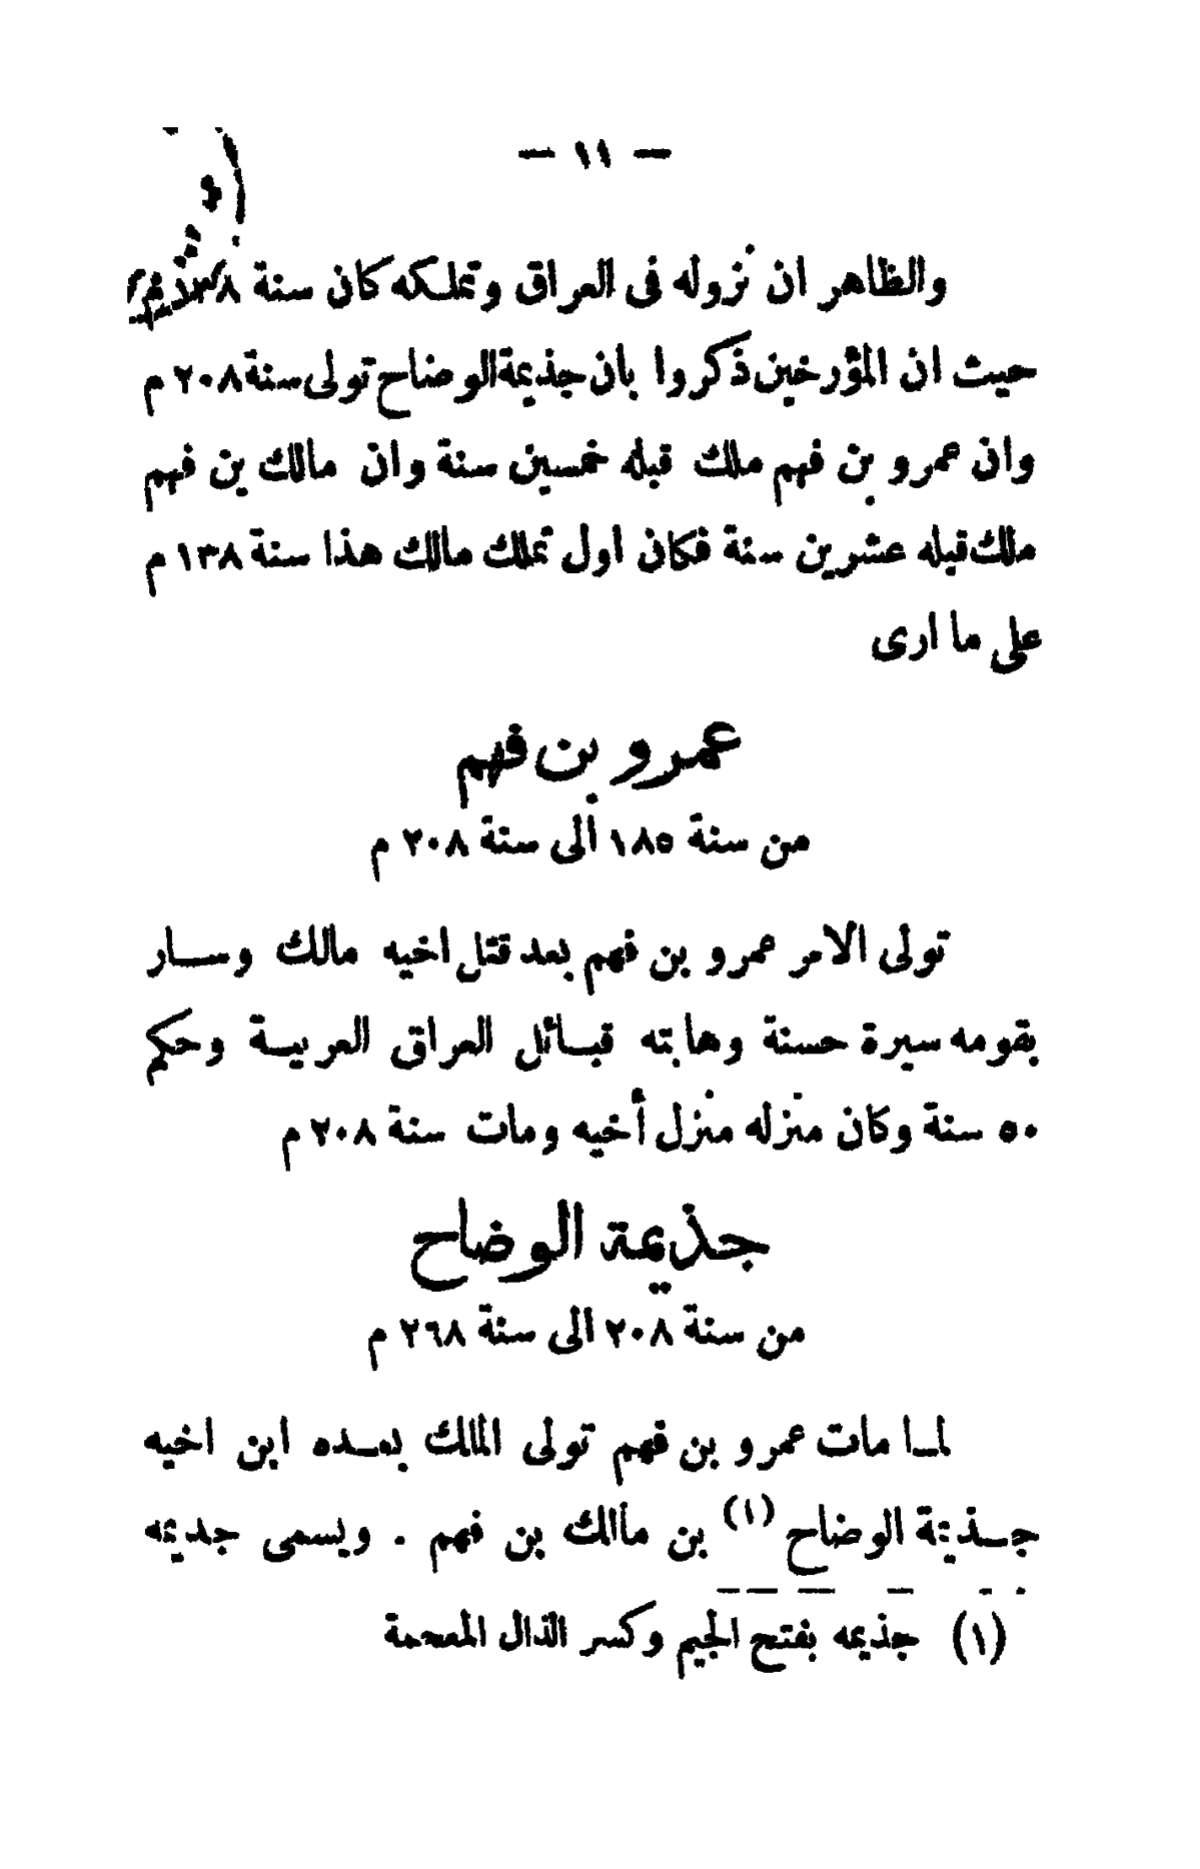 — ١١ —
والظاهر ان نزوله فى العراق وتملكه كان سنة ١٣٨ م
حيث ان المؤرخين ذكروا بان جذيمة الوضاح تولى سنة ٢٠٨ م
وان عمرو بن فهم ملك قبله خمسين سنة وان مالك بن فهم
ملك قبله عشرين سنة فكان اول تملك مالك هذا سنة ١٣٨ م
على ما ارى
عمرو بن فهم
من سنة ١٨٥ الى سنة ٢٠٨ م
تولى الامر عمرو بن فهم بعد قتل اخيه مالك وسار
بقومه سيرة حسنة وهابته قبائل العراق العربية وحكم
٥٠ سنة وكان منزله منزل أخيه ومات سنة ٢٠٨ م
جذيمة الوضاح
من سنة ٢٠٨ الى سنة ٢٦٨ م
لما مات عمرو بن فهم تولى الملك بعده ابن اخيه
جذيمة الوضاح (١) بن مالك بن فهم . ويسمى جديمه
(١) جذيمه بفتح الجيم وكسر الذال المعجمة